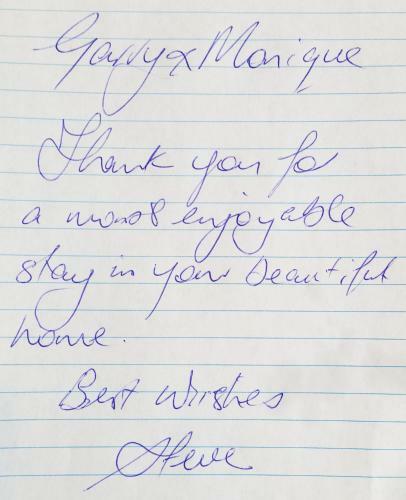 Garry & Monique
Thank you for
a most enjoyable
stay in your beautiful
home.
Best Wishes
Steve